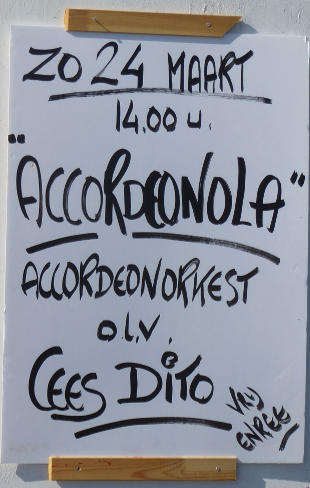 ZO 24 MAART
14.00 U.
"ACCORDEONOLA"
ACCORDEONORKEST
O.L.V.
CEES DITO
VRIJ
ENREE